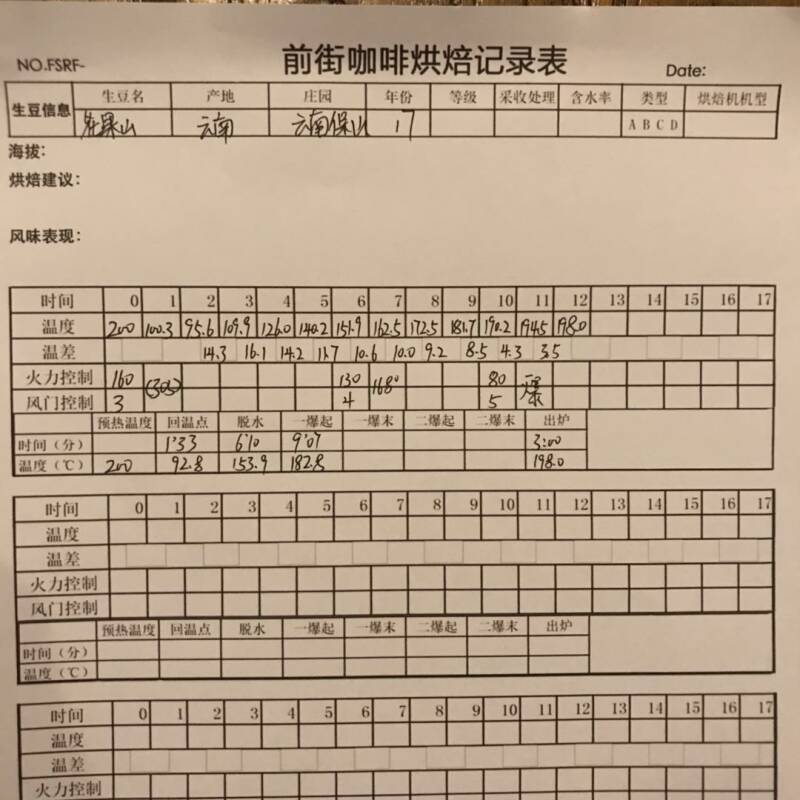 NO.FSRF- 前街咖啡烘焙记录表 Date:
生豆信息 生豆名 产地 庄园 年份 等级 采收处理 含水率 类型 烘焙机机型
云南 云南保山 17 A B C D
海拔:
烘焙建议:
风味表现:
时间 0 1 2 3 4 5 6 7 8 9 10 11 12 13 14 15 16 17
温度 200 100.3 95.6 109.9 126.0 140.2 151.9 162.5 172.5 181.7 190.2 194.5 198.0
温差 14.3 16.1 14.2 11.7 10.6 10.0 9.2 8.5 4.3 3.5
火力控制 160 (30s) 130 168° 80 爆
风门控制 3 4 5
预热温度 回温点 脱水 一爆起 一爆末 二爆起 二爆末 出炉
时间(分) 1'33 6'10 9'07 3:00
温度(℃) 200 92.8 153.9 182.8 198.0
时间 0 1 2 3 4 5 6 7 8 9 10 11 12 13 14 15 16 17
温度
温差
火力控制
风门控制
预热温度 回温点 脱水 一爆起 一爆末 二爆起 二爆末 出炉
时间(分)
温度(℃)
时间 0 1 2 3 4 5 6 7 8 9 10 11 12 13 14 15 16 17
温度
温差
火力控制